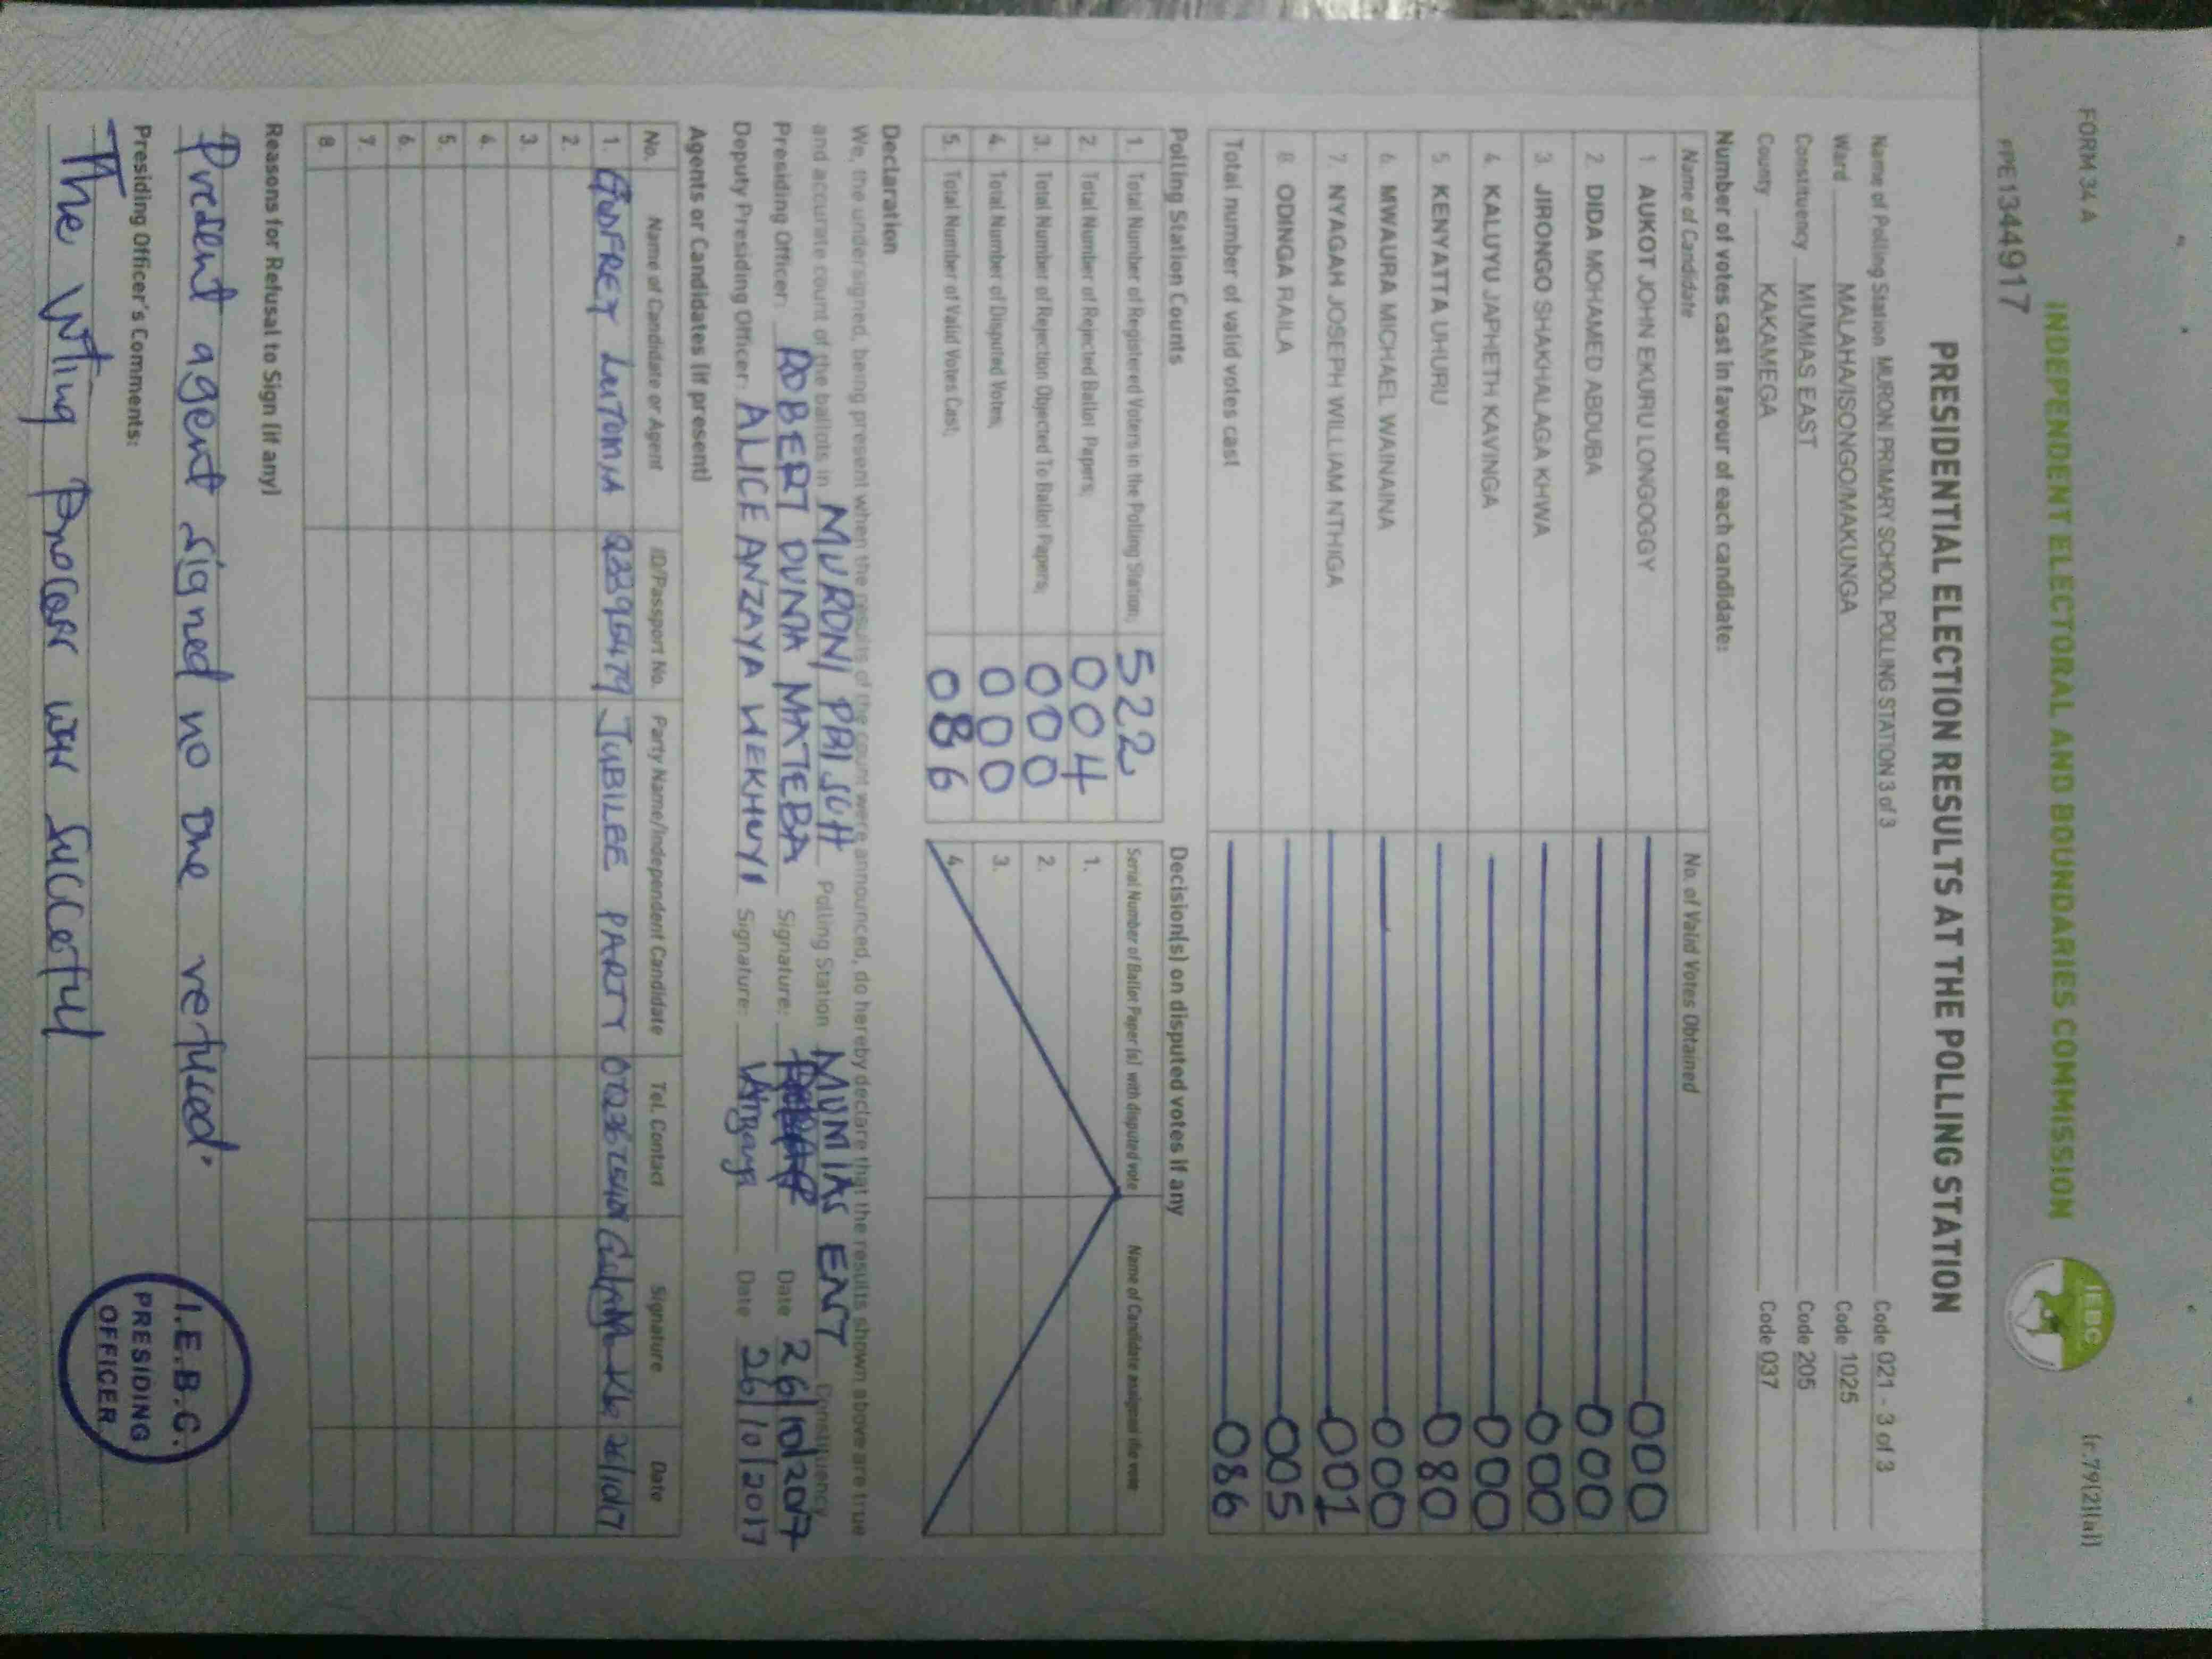 FORM 34 A
(r.79(2)(a))
INDEPENDENT ELECTORAL AND BOUNDARIES COMMISSION
IEBC
PPE1344917
PRESIDENTIAL ELECTION RESULTS AT THE POLLING STATION
Name of Polling Station MURONI PRIMARY SCHOOL POLLING STATION 3 of 3 Code 021 - 3 of 3
Ward MALAHA/ISONGO/MAKUNGA Code 1025
Constituency MUMIAS EAST Code 205
County KAKAMEGA Code 037
Number of votes cast in favour of each candidate:
Name of Candidate No. of Valid Votes Obtained
1 AUKOT JOHN EKURU LONGOGGY 000
2 DIDA MOHAMED ABDUBA 000
3 JIRONGO SHAKHALAGA KHWA 000
4 KALUYU JAPHETH KAVINGA 000
5 KENYATTA UHURU 080
6 MWAURA MICHAEL WAINAINA 000
7 NYAGAH JOSEPH WILLIAM NTHIGA 001
8 ODINGA RAILA 005
Total number of valid votes cast 086
Polling Station Counts
1. Total Number of Registered Voters in the Polling Station; 522
2. Total Number of Rejected Ballot Papers; 004
3. Total Number of Rejection Objected To Ballot Papers; 000
4. Total Number of Disputed Votes; 000
5. Total Number of Valid Votes Cast; 086
Decision(s) on disputed votes if any
Serial Number of Ballot Paper(s) with disputed vote Name of Candidate assigned the vote
1.
2.
3.
4.
Declaration
We, the undersigned, being present when the results of the count were announced, do hereby declare that the results shown above are true
and accurate count of the ballots in MURONI PRI SCH Polling Station MUMIAS EAST Constituency
Presiding Officer: ROBERT DUNTA MATEBA Signature: Date 26/10/2017
Deputy Presiding Officer: ALICE ANZAYA WEKHUYI Signature: Date 26/10/2017
Agents or Candidates (if present)
No. Name of Candidate or Agent ID/Passport No. Party Name/Independent Candidate Tel. Contact Signature Date
1. GODFREY LUTOMIA 22395479 JUBILEE PARTY 26/10/17
2.
3.
4.
5.
6.
7.
8.
Reasons for Refusal to Sign (if any)
Present agent signed no one refused.
Presiding Officer's Comments:
The voting process was succesful
I.E.B.C.
PRESIDING
OFFICER